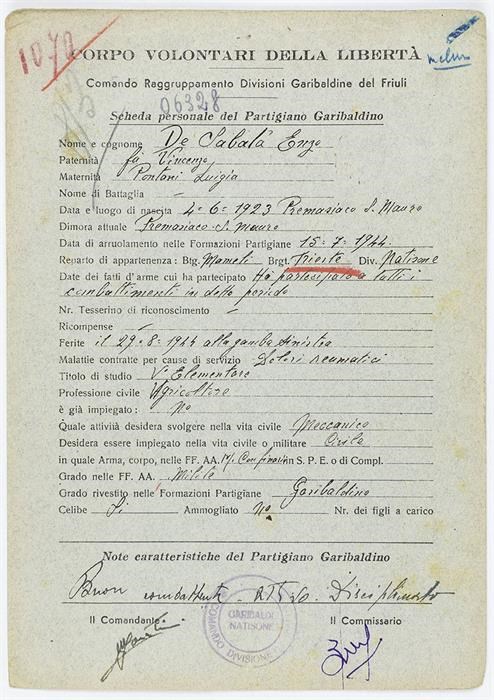 1070
CORPO VOLONTARI DELLA LIBERTÀ
Comando Raggruppamento Divisioni Garibaldine del Friuli
06328
Scheda personale del Partigiano Garibaldino
Nome e cognome De Sabatà Enzo
Paternità fu Vincenzo
Maternità Pontoni Luigia
Nome di Battaglia -
Data e luogo di nascita 4-6-1923 Premariaco S. Mauro
Dimora attuale Premariaco S. Mauro
Data di arruolamento nelle Formazioni Partigiane 15-7-1944
Reparto di appartenenza: Btg. Mameli Brgt. Trieste Div. Natisone
Date dei fatti d'arme cui ha partecipato Ha partecipato a tutti i
combattimenti in detto periodo
Nr. Tesserino di riconoscimento -
Ricompense -
Ferite il 29-8-1944 alla gamba sinistra
Malattie contratte per cause di servizio Dolori reumatici
Titolo di studio Vª Elementare
Professione civile Agricoltore
è già impiegato: No
Quale attività desidera svolgere nella vita civile Meccanico
Desidera essere impiegato nella vita civile o militare Civile
in quale Arma, corpo, nelle FF. AA. in S. P. E. o di Compl.
Grado nelle FF. AA.
Grado rivestito nelle Formazioni Partigiane Garibaldino
Celibe Si Ammogliato No Nr. dei figli a carico
Note caratteristiche del Partigiano Garibaldino
Buon combattente - Disciplinato
Il Comandante
GARIBALDI
NATISONE
COMANDO DIVISIONE
Il Commissario